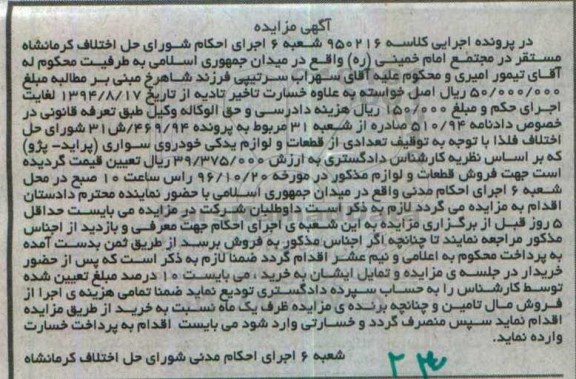 آگهی مزایده
در پرونده اجرایی کلاسه ۹۵۰۲۱۶ شعبه ۶ اجرای احکام شورای حل اختلاف کرمانشاه
مستقر در مجتمع امام خمینی (ره) واقع در میدان جمهوری اسلامی به طرفیت محکوم له
آقای تیمور امیری و محکوم علیه آقای سهراب سرتیپی فرزند شاهرخ مبنی بر مطالبه مبلغ
۵۰/۰۰۰/۰۰۰ ریال اصل خواسته به علاوه خسارت تاخیر تادیه از تاریخ ۱۳۹۴/۸/۱۷ لغایت
اجرای حکم و مبلغ ۱۵۰/۰۰۰ ریال هزینه دادرسی و حق الوکاله وکیل طبق تعرفه قانونی در
خصوص دادنامه ۵۱۰/۹۴ صادره از شعبه ۳۱ مربوط به پرونده ۴۶۹/۹۴/ش۳۱ شورای حل
اختلاف فلذا با توجه به توقیف تعدادی از قطعات و لوازم یدکی خودروی سواری (پراید- پژو)
که بر اساس نظریه کارشناس دادگستری به ارزش ۳۹/۳۷۵/۰۰۰ ریال تعیین قیمت گردیده
است جهت فروش قطعات و لوازم مذکور در مورخه ۹۶/۱۰/۲۰ راس ساعت ۱۰ صبح در محل
شعبه ۶ اجرای احکام مدنی واقع در میدان جمهوری اسلامی با حضور نماینده محترم دادستان
اقدام به مزایده می گردد لازم به ذکر است داوطلبان شرکت در مزایده می بایست حداقل
۵ روز قبل از برگزاری مزایده به این شعبه ی اجرای احکام جهت معرفی و بازدید از اجناس
مذکور مراجعه نمایند تا چنانچه اگر اجناس مذکور به فروش برسد از طریق ثمن بدست آمده
به پرداخت محکوم به اعلامی و نیم عشر اقدام گردد ضمنا لازم به ذکر است که پس از حضور
خریدار در جلسه ی مزایده و تمایل ایشان به خرید، می بایست ۱۰ درصد مبلغ تعیین شده
توسط کارشناس را به حساب سپرده دادگستری تودیع نماید ضمنا تمامی هزینه ی اجرا از
فروش مال تامین و چنانچه برنده ی مزایده ظرف یک ماه نسبت به خرید از طریق مزایده
اقدام نماید سپس منصرف گردد و خسارتی وارد شود می بایست اقدام به پرداخت خسارت
وارده نماید.
شعبه ۶ اجرای احکام مدنی شورای حل اختلاف کرمانشاه